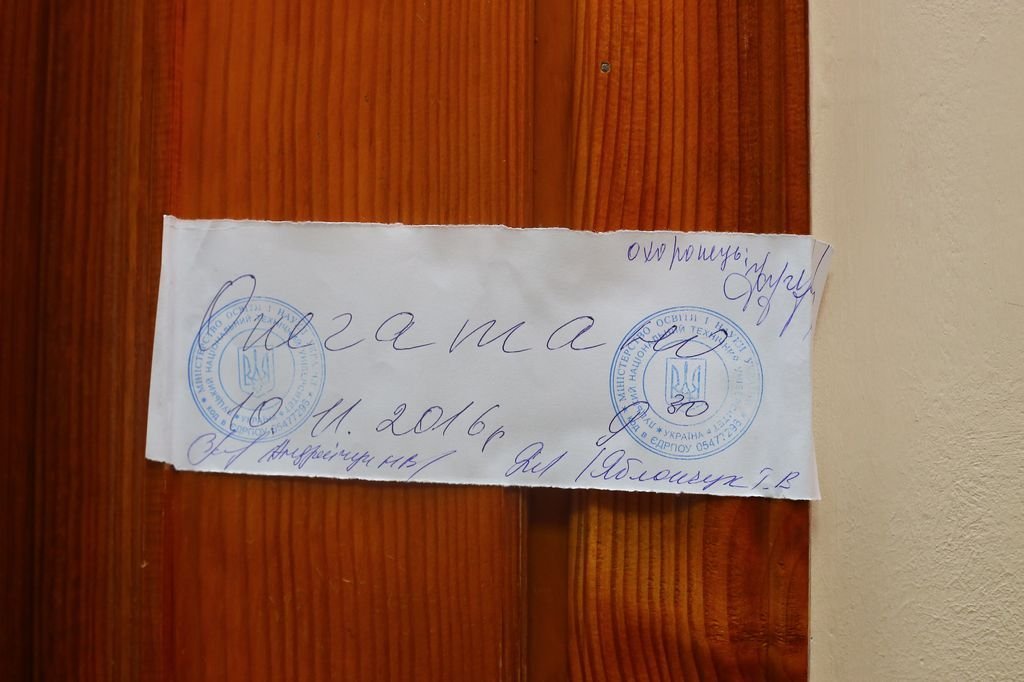 охоронець:
Опечатано
10.11.2016р 9 30
Андрейчук НВ / Яблончук Т.В
МІНІСТЕРСТВО ОСВІТИ І НАУКИ УКРАЇНИ
ЛУЦЬКИЙ НАЦІОНАЛЬНИЙ ТЕХНІЧНИЙ УНІВЕРСИТЕТ
УКРАЇНА
код в ЄДРПОУ 05477296
МІНІСТЕРСТВО ОСВІТИ І НАУКИ УКРАЇНИ
ЛУЦЬКИЙ НАЦІОНАЛЬНИЙ ТЕХНІЧНИЙ УНІВЕРСИТЕТ
УКРАЇНА
код в ЄДРПОУ 05477296